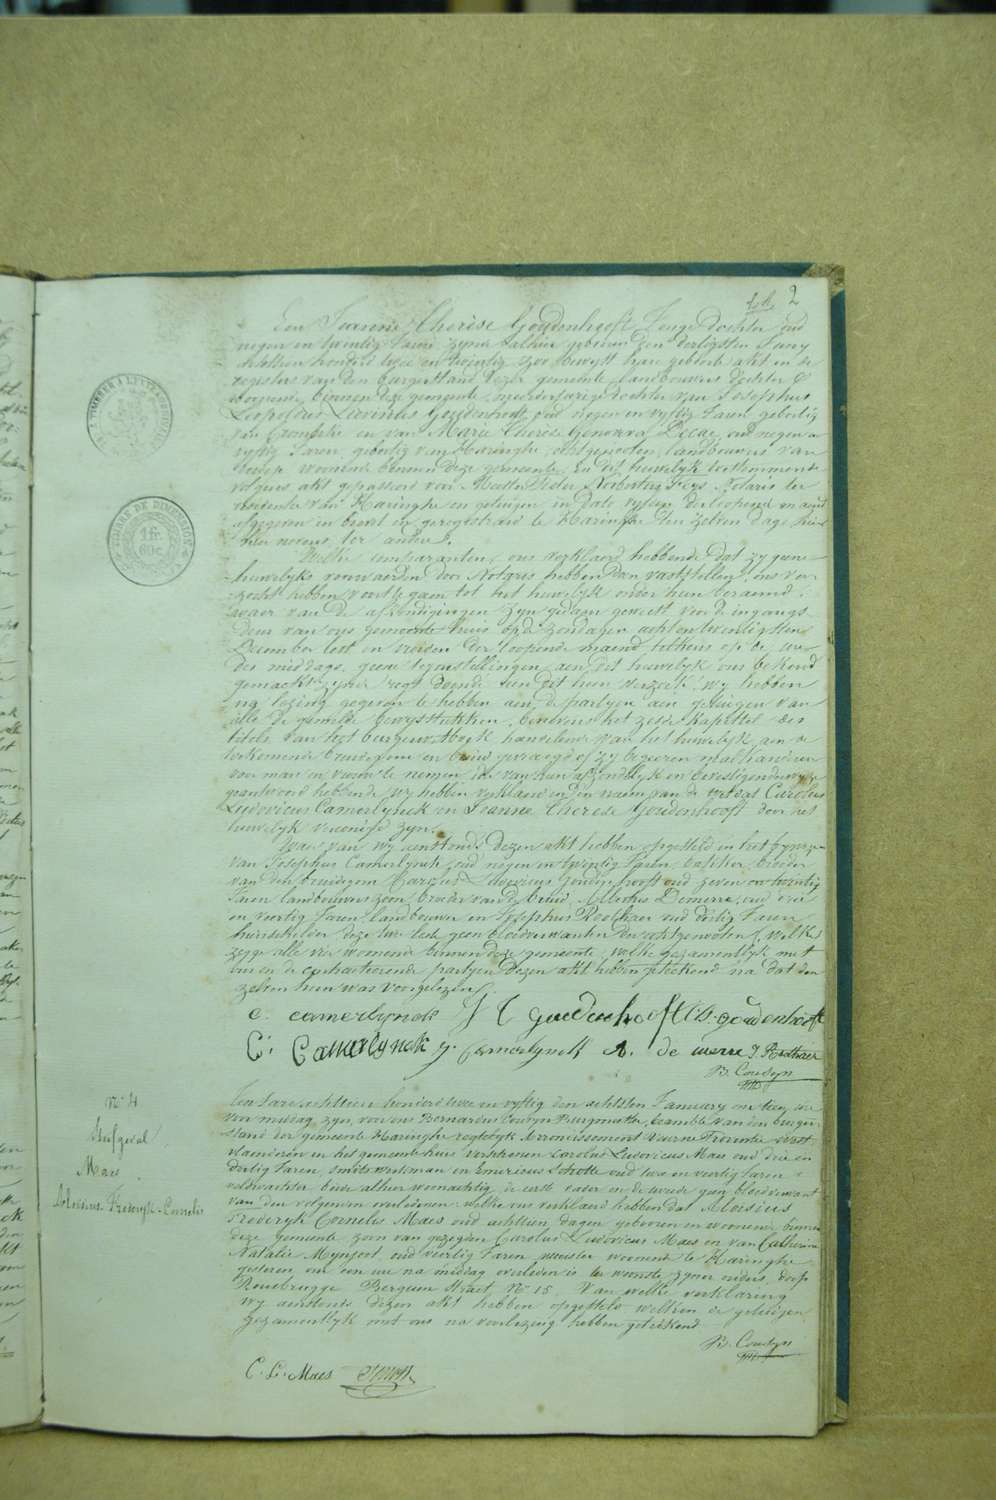 2
TIMBRE DE DIMENSION
1 fr.
60 c.
Een Jeanne Therèse Goudenhooft Jonge dochter oud
negen en twintig Jaren zynde alhier geboren den dertigsten Juny
achttien honderd twee en twintig zoo bewyst hare geboorte akt in de
registers van den burgerstand dezer gemeente, landbouwers dochter &
woonende binnen deze gemeente, meerderjarige dochter van Josephus
Leopoldus Livinus Goudenhooft, oud negen en vyftig Jaren, geboortig
van Crombeke en van Marie Therese Genoveva Decae, oud negen en
vyftig Jaren, geboortig van Haringhe, echtgenooten, landbouwers van
woonende binnen deze gemeente. En dit huwelyk
volgens akt gepasseerd voor Meester Pieter Norbertus Feys Notaris ter
residentie van Haringhe en getuigen in date vyfden der loopende maand
afgegeven in brevet en geregistreerd te Haringhe den zelven dage
Welke comparanten, ons verklaard hebbende dat zy geene
huwelyks voorwaerden door Notaris hebben doen vaststellen, ons ver-
zocht hebben voort te gaen tot het huwelyk onder hun beraemd,
waer van de afkondigingen zyn gedaen geweest voor de ingangs
deur van ons gemeente huis op de zondagen acht en twentigsten
December lest en vierden der loopende maend, telkens op de uer
des middags, geene tegenstellingen aen dit huwelyk ons bekend
gemaekt zynde regt doende aen dit hun verzoek, wy hebben
na lezing gegeven te hebben aen de partyen aen getuigen van
alle de gemelde bewysstukken, benevens het zesde kapittel des
titels van het burger wetboek handelende van het huwelyk, aen de
toekomende bruidegom en bruid gevraegd of zy begeeren malkanderen
voor man en vrouw te nemen, ider van hun afzondelyk en bevestigender wyze
geantwoord hebbende, wy hebben verklaerd in den naem van de wet dat Carolus
Ludovicus Camerlynck en Jeanne Therese Goudenhooft door het
huwelyk vereenigd zyn.
Waer van wy aenstonds dezen akt hebben opgesteld in het bywezen
van Josephus Camerlynck, oud negen en twentig Jaren, broeder
van den bruidegom Carolus Ludovicus Goudenhooft oud zeven en twintig
Jaren landbouwers zoon broeder van de bruid, Albertus Demerre, oud drie
en veertig Jaren landbouwer en Josephus Roelhaer oud dertig Jaren
huisschilder, deze twee leste geen bloedverwanten der echtgenooten, welke
zegge alle vier woonende binnen deze gemeente, welke gezamentlyk met
ons en de contracteerende partyen dezen akt hebben geteekend na dat den
zelven hun was voorgelezen.
c. camerlynck J T goudenhooft C L goudenhooft
C. Camerlynck J. Camerlynck A. de merre J. Roelhaer
B. Couseyn
N° 4
Sterfgeval
Maes
Aloisius Frederyk-Cornelis
Den Jare achttien honderd twee en vyftig den achtsten January om tien uren
voor middag, zyn voor ons Bernardus Couseyn Burgmeester, beambte van den burger-
stand der gemeente Haringhe regtelyk Arrondissement Veurne Provintie West-
vlaenderen in het gemeente huis verschenen Carolus Ludovicus Maes oud drie en
dertig Jaren smids werkman en Emericus Schotte oud twee en veertig Jaren
veldwachter beide alhier woonachtig, de eerste vader en de tweede geen bloedverwant
van den volgenden overledenen; welke ons verklaerd hebben dat Aloisius
Frederyk Cornelis Maes oud achttien dagen geboren en woonende binnen
deze gemeente zoon van gezegden Carolus Ludovicus Maes en van Catherine
Natalie Mynfoot oud veertig Jaren, woonende te Haringhe
gisteren om een ure na middag overleden is ter woonste zyner ouders, dorp
Rousbrugge Berguen straet N° 15. Van welke verklaring
wy aenstonds dezen akt hebben opgesteld welken de getuigen
gezamentlyk met ons na voorlezing hebben geteekend
B. Couseyn
C. L. Maes